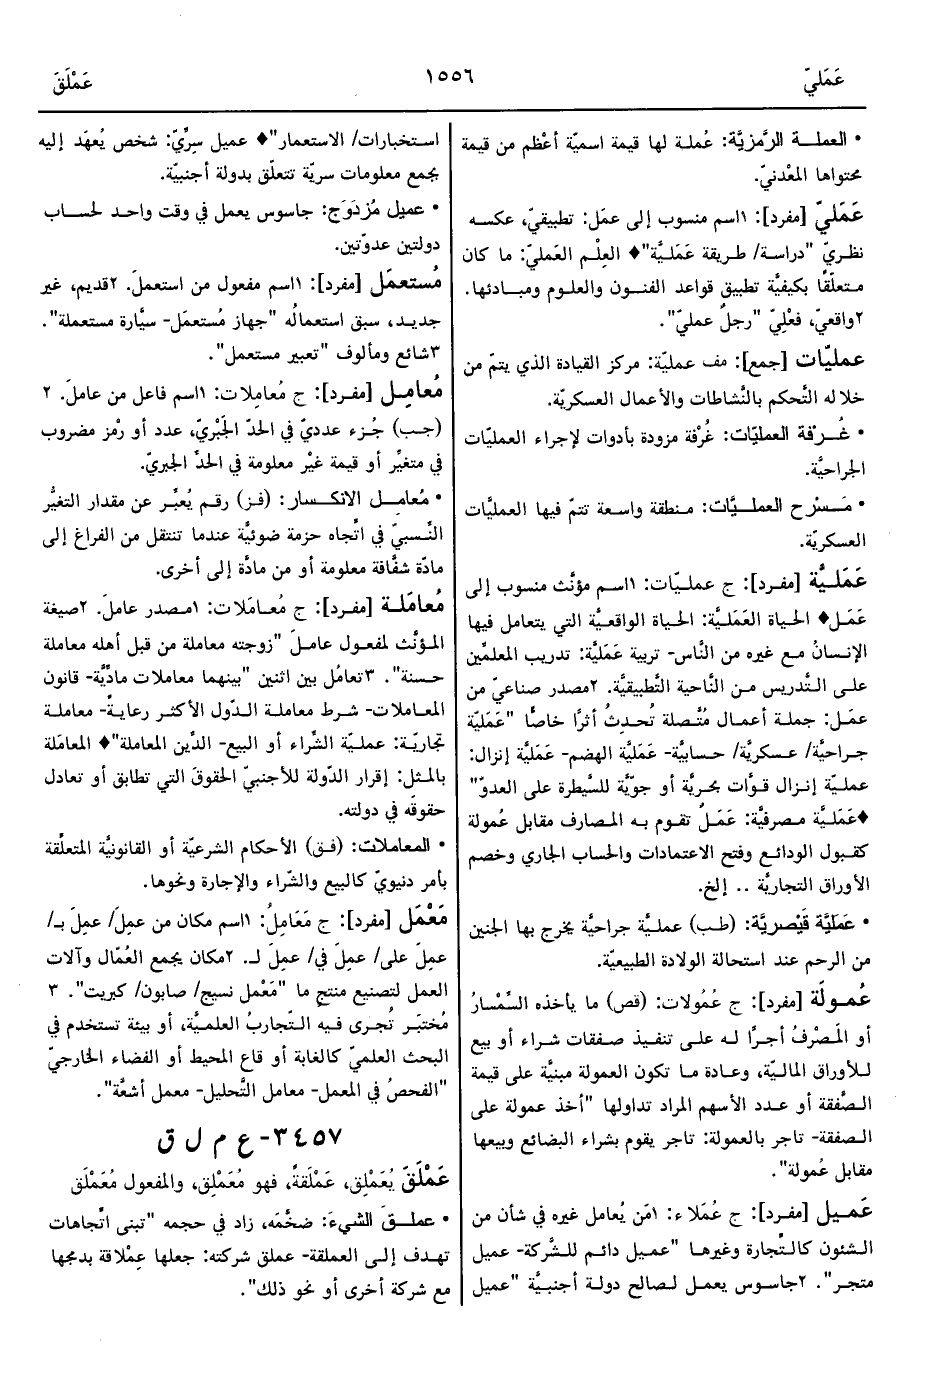 عَمَليّ
١٥٥٦
عَمْلَقَ
• العملـة الرَّمزيَّة: عُملة لها قيمة اسميّة أعْظم من قيمة
محتواها المعْدنيّ.
عَمَليّ [مفرد]: ١اسم منسوب إلى عمَل: تطبيقيّ، عكسه
نظريّ "دراسة/ طريقة عَمَليَّة"♦ العِلْم العَمليّ: ما كان
متعلّقًا بكيفيَّة تطبيق قواعد الفنون والعلوم ومبادئها.
٢واقعيّ، فعْليّ "رجلٌ عمليّ".
عمليّات [جمع]: مف عمليّة: مركز القيادة الذي يتمّ من
خلاله التَّحكم بالنَّشاطات والأعمال العسكريّة.
• غُرفة العمليّات: غُرْفة مزودة بأدوات لإجراء العمليّات
الجراحيَّة.
• مَسْرح العمليَّات: منطقة واسعة تتمّ فيها العمليَّات
العسكريّة.
عَمَليَّة [مفرد]: ج عمليّات: ١اسم مؤنَّث منسوب إلى
عَمَل♦ الحياة العَمَليَّة: الحياة الواقعيَّة التي يتعامل فيها
الإنسانُ مع غيره من النَّاس- تربية عَمَليَّة: تدريب المعلِّمين
على التَّدريس من النَّاحية التَّطبيقيَّة. ٢مصدر صناعيّ من
عمَل: جملة أعمال مُتَّصلة تُحدِثُ أثرًا خاصًّا "عَمَليَّة
جراحيَّة/ عسكريَّة/ حسابيَّة- عَمَليَّة الهضم- عَمَليَّة إنزال:
عمليّة إنزال قوَّات بحريَّة أو جوّيَّة للسَّيطرة على العدوّ"
♦عَمَليَّة مصرفيَّة: عَمَلٌ تقوم به المصارف مقابل عُمولة
كقبول الودائع وفتح الاعتمادات والحساب الجاري وخصم
الأوراق التجاريَّة .. إلخ.
• عَمَليَّة قَيْصريَّة: (طب) عمليَّة جراحيَّة يخرج بها الجنين
من الرحم عند استحالة الولادة الطبيعيَّة.
عُمولَة [مفرد]: ج عُمُولات: (قص) ما يأخذه السِّمْسارُ
أو المَصْرفُ أجرًا له على تنفيذ صفقات شراء أو بيع
للأوراق الماليَّة، وعادة ما تكون العمولة مبنيَّة على قيمة
الصَّفْقة أو عدد الأسهم المراد تداولها "أخذ عمولة على
الصفقة- تاجر بالعمولة: تاجر يقوم بشراء البضائع وبيعها
مقابل عُمولة".
عَميل [مفرد]: ج عُمَلاء: ١مَن يُعامل غيره في شأن من
الشئون كالتِّجارة وغيرها "عميل دائم للشَّركة- عميل
متجر". ٢جاسوس يعمل لصالح دولة أجنبيَّة "عميل
استخبارات/ الاستعمار"♦ عميل سِرِّيّ: شخص يُعهَد إليه
بجمع معلومات سريّة تتعلَّق بدولة أجنبيَّة.
• عميل مُزدَوَج: جاسوس يعمل في وقت واحد لحساب
دولتين عدوّتين.
مُستعمَل [مفرد]: ١اسم مفعول من استعملَ. ٢قديم، غير
جديد، سبق استعمالُه "جهاز مُستعمَل- سيَّارة مستعملة".
٣شائع ومألوف "تعبير مستعمل".
مُعامِل [مفرد]: ج مُعامِلات: ١اسم فاعل من عاملَ. ٢
(جب) جُزء عدديّ في الحدّ الجَبْريّ، عدد أو رمْز مضروب
في متغيِّر أو قيمة غيْر معلومة في الحدِّ الجبريّ.
• مُعامِل الانكسار: (فز) رقم يُعبِّر عن مقدار التغيُّر
النِّسبيّ في اتِّجاه حزمة ضوئيَّة عندما تنتقل من الفراغ إلى
مادّة شفَّافة معلومة أو من مادَّة إلى أخرى.
مُعامَلة [مفرد]: ج مُعامَلات: ١مصدر عاملَ. ٢صيغة
المؤنَّث لمفعول عاملَ "زوجته معاملة من قبل أهله معاملة
حسنة". ٣تعامُل بين اثنين "بينهما معاملات مادِّيَّة- قانون
المعاملات- شرط معاملة الدّول الأكثر رعايةً- معاملة
تجاريّة: عمليّة الشِّراء أو البيع- الدَّين المعاملة"♦ المعامَلة
بالمثل: إقرار الدّولة للأجنبيّ الحقوقَ التي تطابق أو تعادل
حقوقَه في دولته.
• المعاملات: (فق) الأحكام الشرعيَّة أو القانونيَّة المتعلِّقة
بأمر دنيويّ كالبيع والشِّراء والإجارة ونحوها.
مَعْمَل [مفرد]: ج مَعَامِلُ: ١اسم مكان من عمِلَ/ عمِلَ بـ/
عمِلَ على/ عمِلَ في/ عمِلَ لـ. ٢مكان يجمع العُمّال وآلات
العمل لتصنيع منتج ما "مَعْمل نسيج/ صابون/ كبريت". ٣
مُختبَر تُجرى فيه التَّجاربُ العلميَّة، أو بيئة تستخدم في
البحث العلميّ كالغابة أو قاع المحيط أو الفضاء الخارجيّ
"الفحصُ في المعمل- معامل التَّحليل- معمل أشعَّة".
٣٤٥٧- ع م ل ق
عَمْلَقَ يُعَمْلِق، عَمْلَقةً، فهو مُعَمْلِق، والمفعول مُعَمْلَق
• عملقَ الشَّيءَ: ضخَّمه، زاد في حجمه "تبنى اتِّجاهات
تهدف إلى العملقة- عملق شركته: جعلها عِمْلاقة بدمجها
مع شركة أخرى أو نحو ذلك".